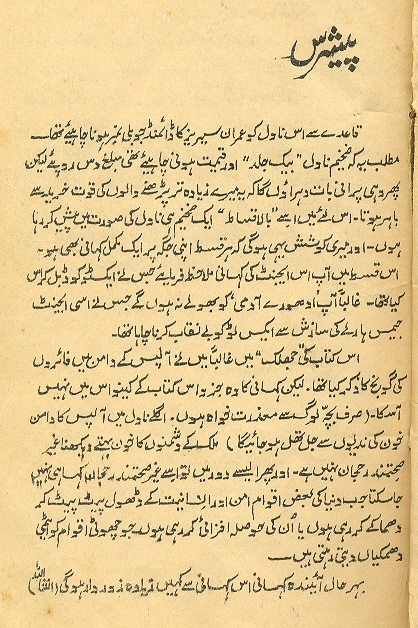 پیشرس
قاعدے سے اس ناول کو عمران سیریز کا ڈائمنڈ جوبلی نمبر ہونا چاہیئے تھا۔
مطلب یہ کہ ضخیم ناول "بیک جلد" اور قیمت ہونی چاہیئے تھی مبلغ دس روپئے لیکن
پھر وہی پرانی بات دہراؤں گا کہ میرے زیادہ تر پڑھنے والوں کی قوت خرید سے
باہر ہوتا۔ اس لئے میں اسے "بالاقساط" ایک ضخیم ہی ناول کی صورت میں پیش کر رہا
ہوں۔ اور میری کوشش یہی ہوگی کہ ہر قسط اپنی جگہ پر ایک مکمل کہانی بھی ہو۔
اس قسط میں آپ اس ایجنٹ کی کہانی ملاحظہ فرمایئے جس نے ایکسٹو کو ڈبل کراس
کیا تھا۔ غالباً آپ ادھورے آدمی کو بھولے نہ ہوں گے جس نے اسی ایجنٹ
جیمس ہارلے کی سازش سے ایکس ٹو کو بے نقاب کرنا چاہا تھا۔
اس کتاب کی "جھلک" میں غالباً میں نے آلپس کے دامن میں فائروں
کی گونج کا ذکر کیا تھا۔ لیکن کہانی کا وہ جزو اس کتاب کے کینوس میں نہیں
آ سکا۔ (صرف بچہ لوگ سے معذرت خواہ ہوں۔ اگلے ناول میں آلپس کا دامن
خون کی ندیوں سے جل تھل ہو جائیگا) ملک کے دشمنوں کا خون بہتے دیکھنا غیر
صحتمند رجحان نہیں ہے۔ اور پھر ایسے دور میں تو اسے غیر صحتمند رجحان کہا ہی نہیں
جا سکتا جب دنیا کی بعض اقوام امن اور انسانیت کے ڈھول پیٹ پیٹ کر
دھماکے کر رہی ہوں یا اُن کی حوصلہ افزائی کر رہی ہوں جو چھوٹی اقوام کو ایٹمی
دھمکیاں دیتی رہتی ہیں —
بہر حال آئیندہ کہانی اس کہانی سے کہیں زیادہ زور دار ہوگی (انشاءاللہ)